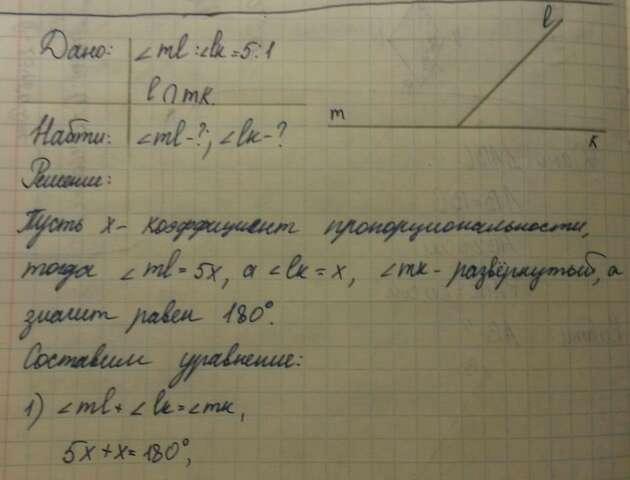 Дано: ∠ml : ∠lk = 5:1
l ∩ mk.
Найти: ∠ml - ?; ∠lk - ?
Решение:
m
l
k
Пусть x - коэффициент пропорциональности,
тогда ∠ml = 5x, а ∠lk = x, ∠mk - развёрнутый, а
значит равен 180°.
Составим уравнение:
1) ∠ml + ∠lk = ∠mk,
5x + x = 180°,